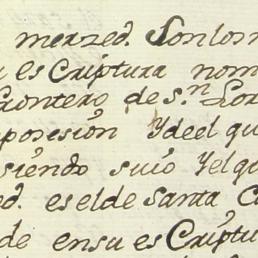 merzed. Son los
es Criptura nom
Frontero de s.n Lor
posesión Y de el qu
siendo suio Y el qu
ed. es el de santa C
de en su es Criptu